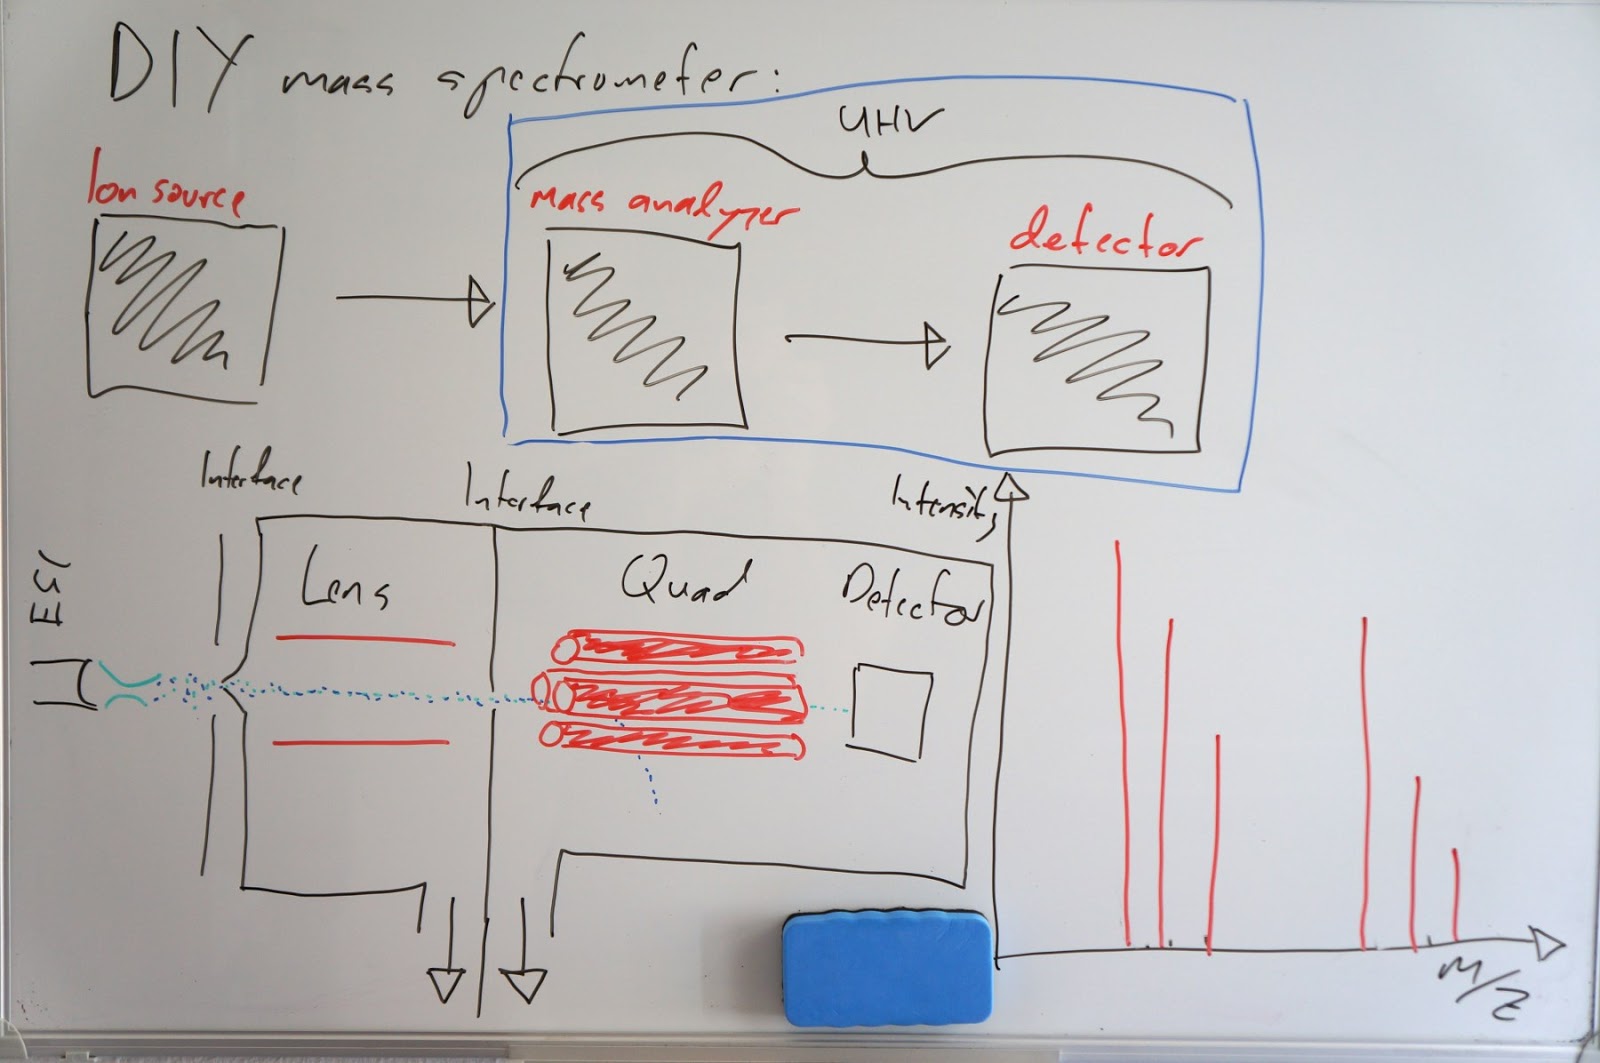 DIY mass spectrometer:
UHV
Ion source
mass analyzer
detector
Interface
Interface
Intensity
ESI
Lens
Quad
Detector
M/Z